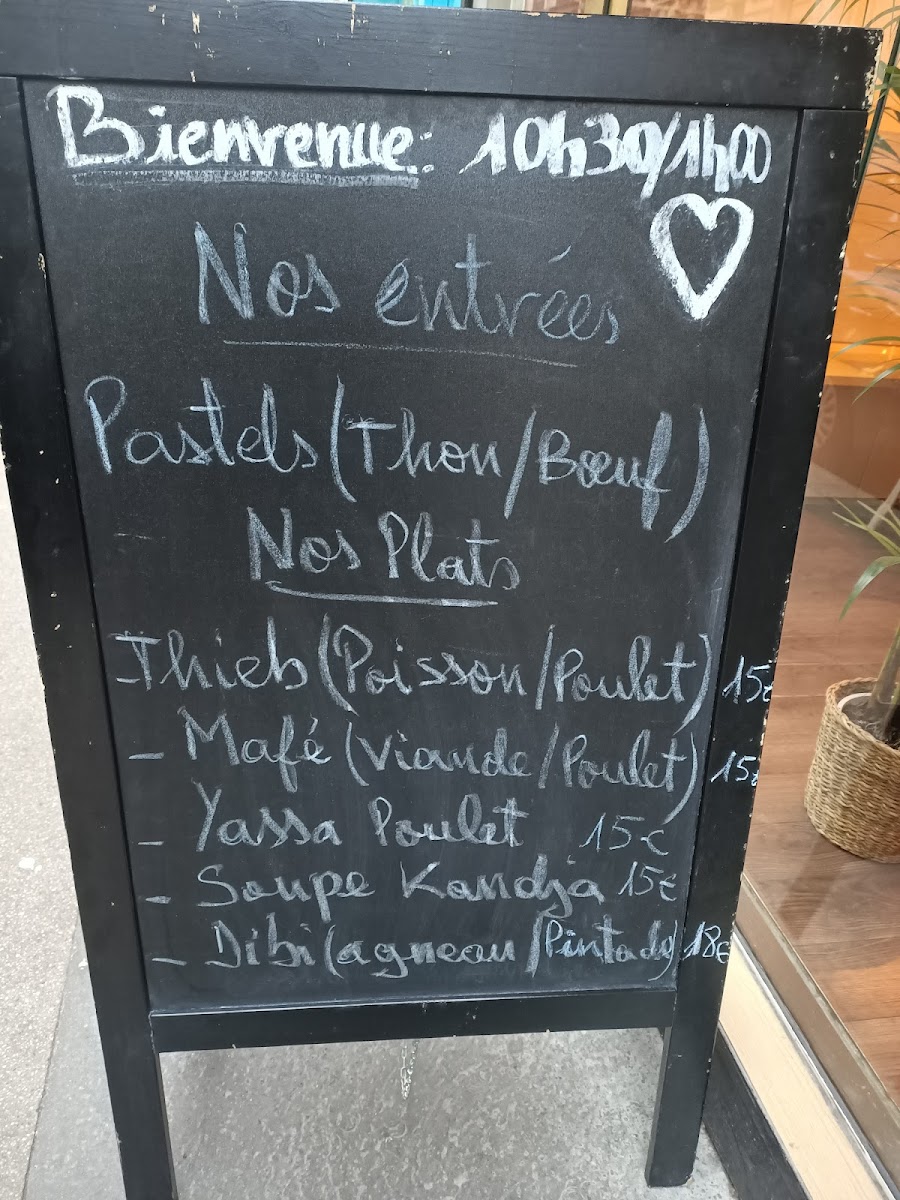 Bienvenue: 10h30/1h00
Nos entrées
Pastels (Thon/Bœuf)
Nos Plats
Thieb (Poisson/Poulet) 15€
- Mafé (Viande/Poulet) 15€
- Yassa Poulet 15€
- Soupe Kandja 15€
- Dibi (agneau/Pintade) 18€